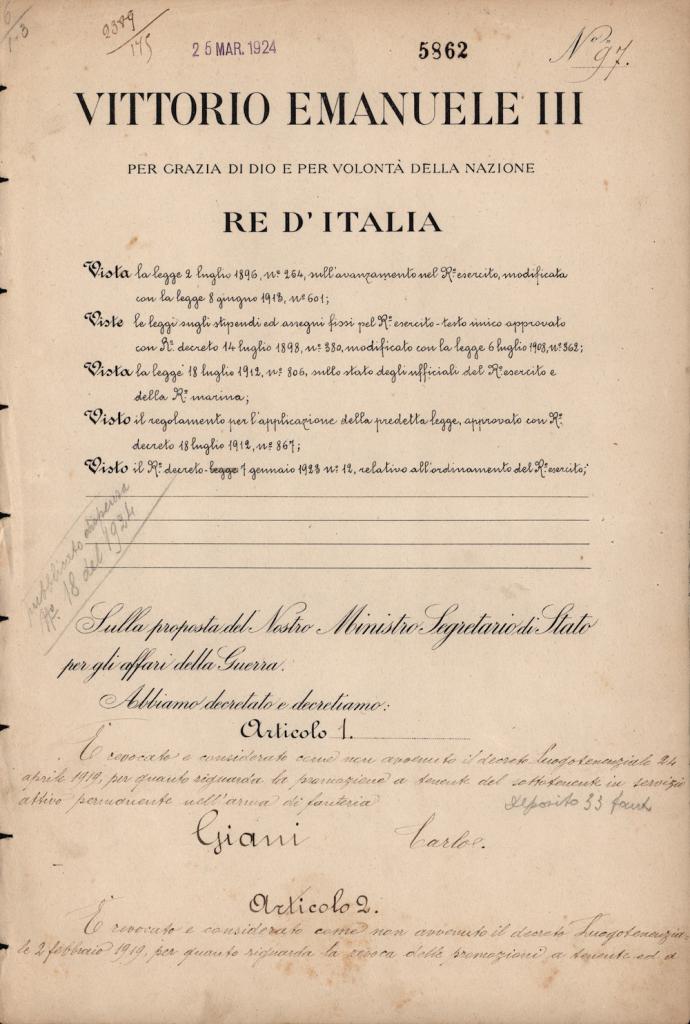 6
1-3
2389
175
26 MAR. 1924
5862
No 97.
VITTORIO EMANUELE III
PER GRAZIA DI DIO E PER VOLONTÀ DELLA NAZIONE
RE D'ITALIA
Vista la legge 2 luglio 1896, nº 254, sull'avanzamento nel Rº esercito, modificata
con la legge 8 giugno 1913, nº 601;
Viste le leggi sugli stipendi ed assegni fissi pel Rº esercito - testo unico approvato
con Rº decreto 14 luglio 1898, nº 380, modificato con la legge 6 luglio 1908, nº 362;
Vista la legge 18 luglio 1912, nº 806, sullo stato degli ufficiali del Rº esercito e
della Rª marina;
Visto il regolamento per l'applicazione della predetta legge, approvato con Rº
decreto 18 luglio 1912, nº 867;
Visto il Rº decreto-legge 7 gennaio 1923 nº 12, relativo all'ordinamento del Rº esercito;
pubblicato dispensa
Nº 18 del 1924
Sulla proposta del Nostro Ministro Segretario di Stato
per gli affari della Guerra.
Abbiamo decretato e decretiamo:
Articolo 1.
È revocato e considerato come non avvenuto il decreto Luogotenenziale 24
aprile 1919, per quanto riguarda la promozione a tenente del sottotenente in servizio
attivo permanente nell'arma di fanteria
deposito 33 fant
Giani Carlo.
Articolo 2.
È revocato e considerato come non avvenuto il decreto Luogotenenzia-
le 2 febbraio 1919, per quanto riguarda la revoca delle promozioni a tenente ed a